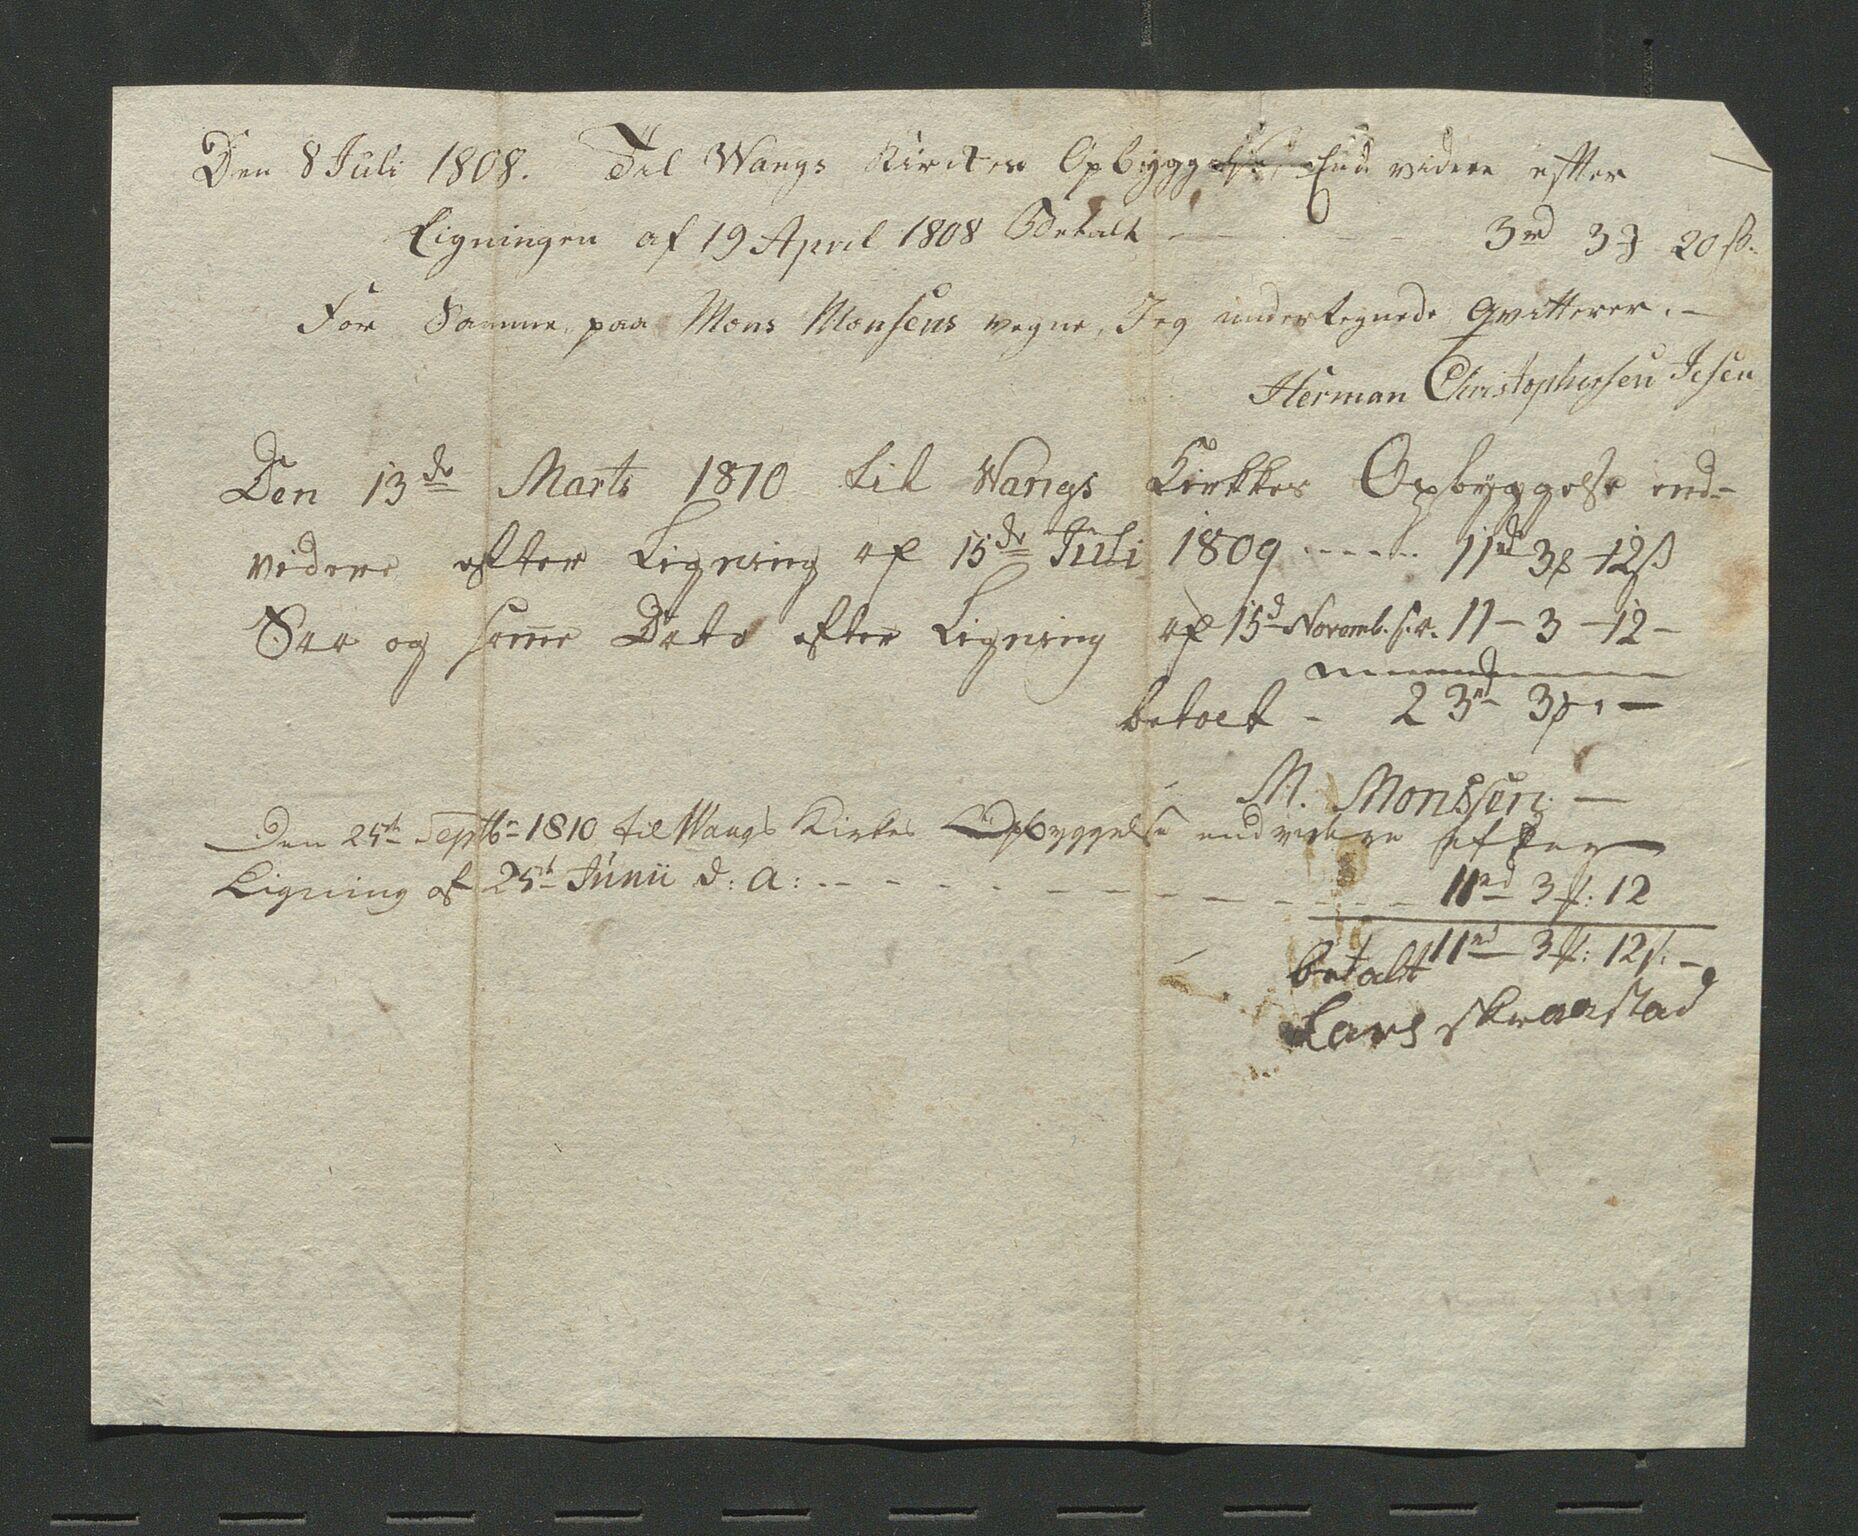 Den 8 Juli 1808. Til Wangs Kirckes Opbyggelse End videre efter
Ligningen af 19 April 1808 Betalt - - - 3 rd 3 20 ß.
For Samme, paa Mons Monsens vegne, Jeg undertegnede Qvitterer. -
Herman Christophersen Jesen
Den 13de Marts 1810 til Wangs Kirkkes Opbyggelse end-
videre efter Ligning af 15de Juli 1809 ------ 11 rd 3 12 ß
Saa og same Dato efter Ligning af 15d Novemb. s. a. 11 - 3 - 12 -
betalt - 23 rd 3 -
M. Monssen. -
Den 25te Septbr 1810 til Wangs Kirkes Opbyggelse endvidere efter
Ligning af 25t Junii d: A: - - - - 11 rd 3 12
betalt 11 rd 3 12 -
Lars Skraastad